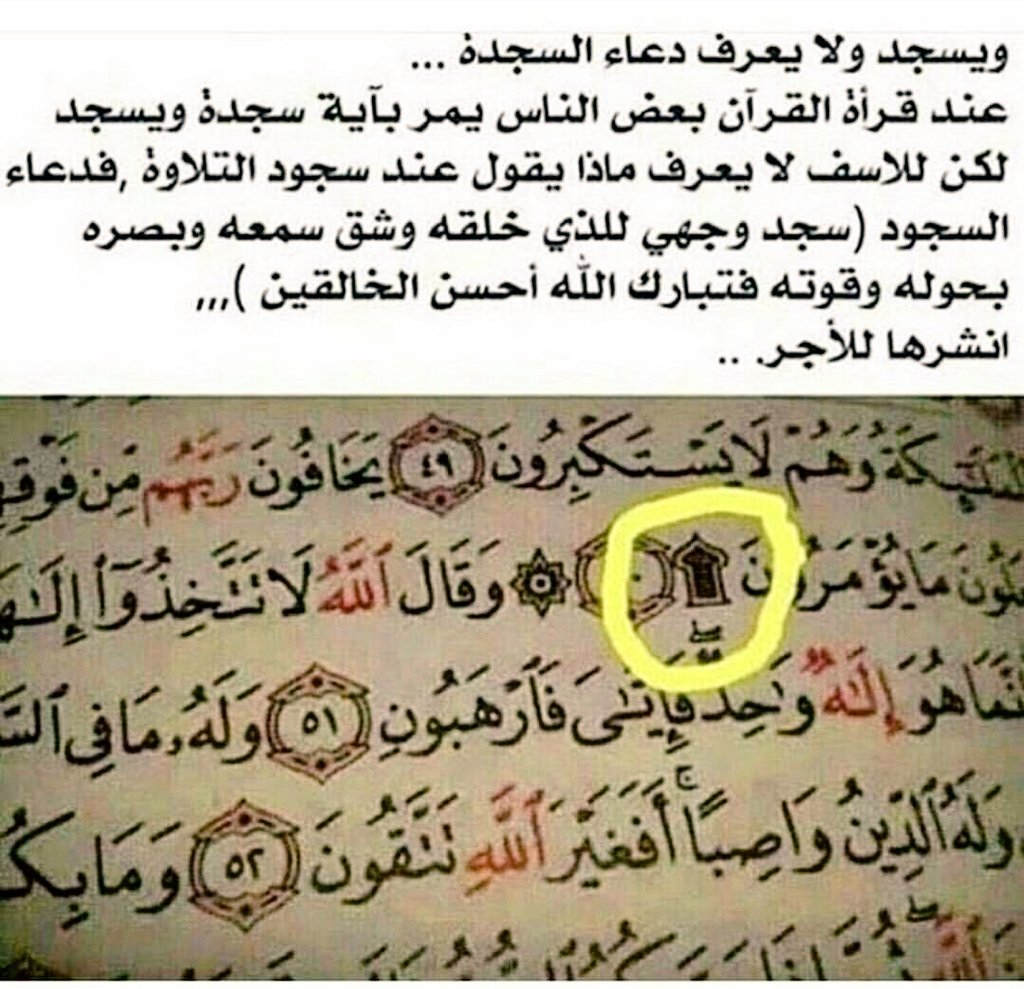 ويسجد ولا يعرف دعاء السجدة ...
عند قرأة القرآن بعض الناس يمر بآية سجدة ويسجد
لكن للاسف لا يعرف ماذا يقول عند سجود التلاوة ,فدعاء
السجود (سجد وجهي للذي خلقه وشق سمعه وبصره
بحوله وقوته فتبارك الله أحسن الخالقين ),,,
انشرها للأجر. ..
وَهُمْ لَا يَسْتَكْبِرُونَ ٤٩ يَخَافُونَ رَبَّهُم مِّن فَوْقِهِ
مَا يُؤْمَرُونَ ۩ ۞ وَقَالَ ٱللَّهُ لَا تَتَّخِذُوٓا۟ إِلَـٰهَ
هُوَ إِلَـٰهٌ وَٰحِدٌ ۖ فَإِيَّـٰىَ فَٱرْهَبُونِ ٥١ وَلَهُۥ مَا فِى ٱلسَّ
وَلَهُ ٱلدِّينُ وَاصِبًا ۚ أَفَغَيْرَ ٱللَّهِ تَتَّقُونَ ٥٢ وَمَا بِكُ